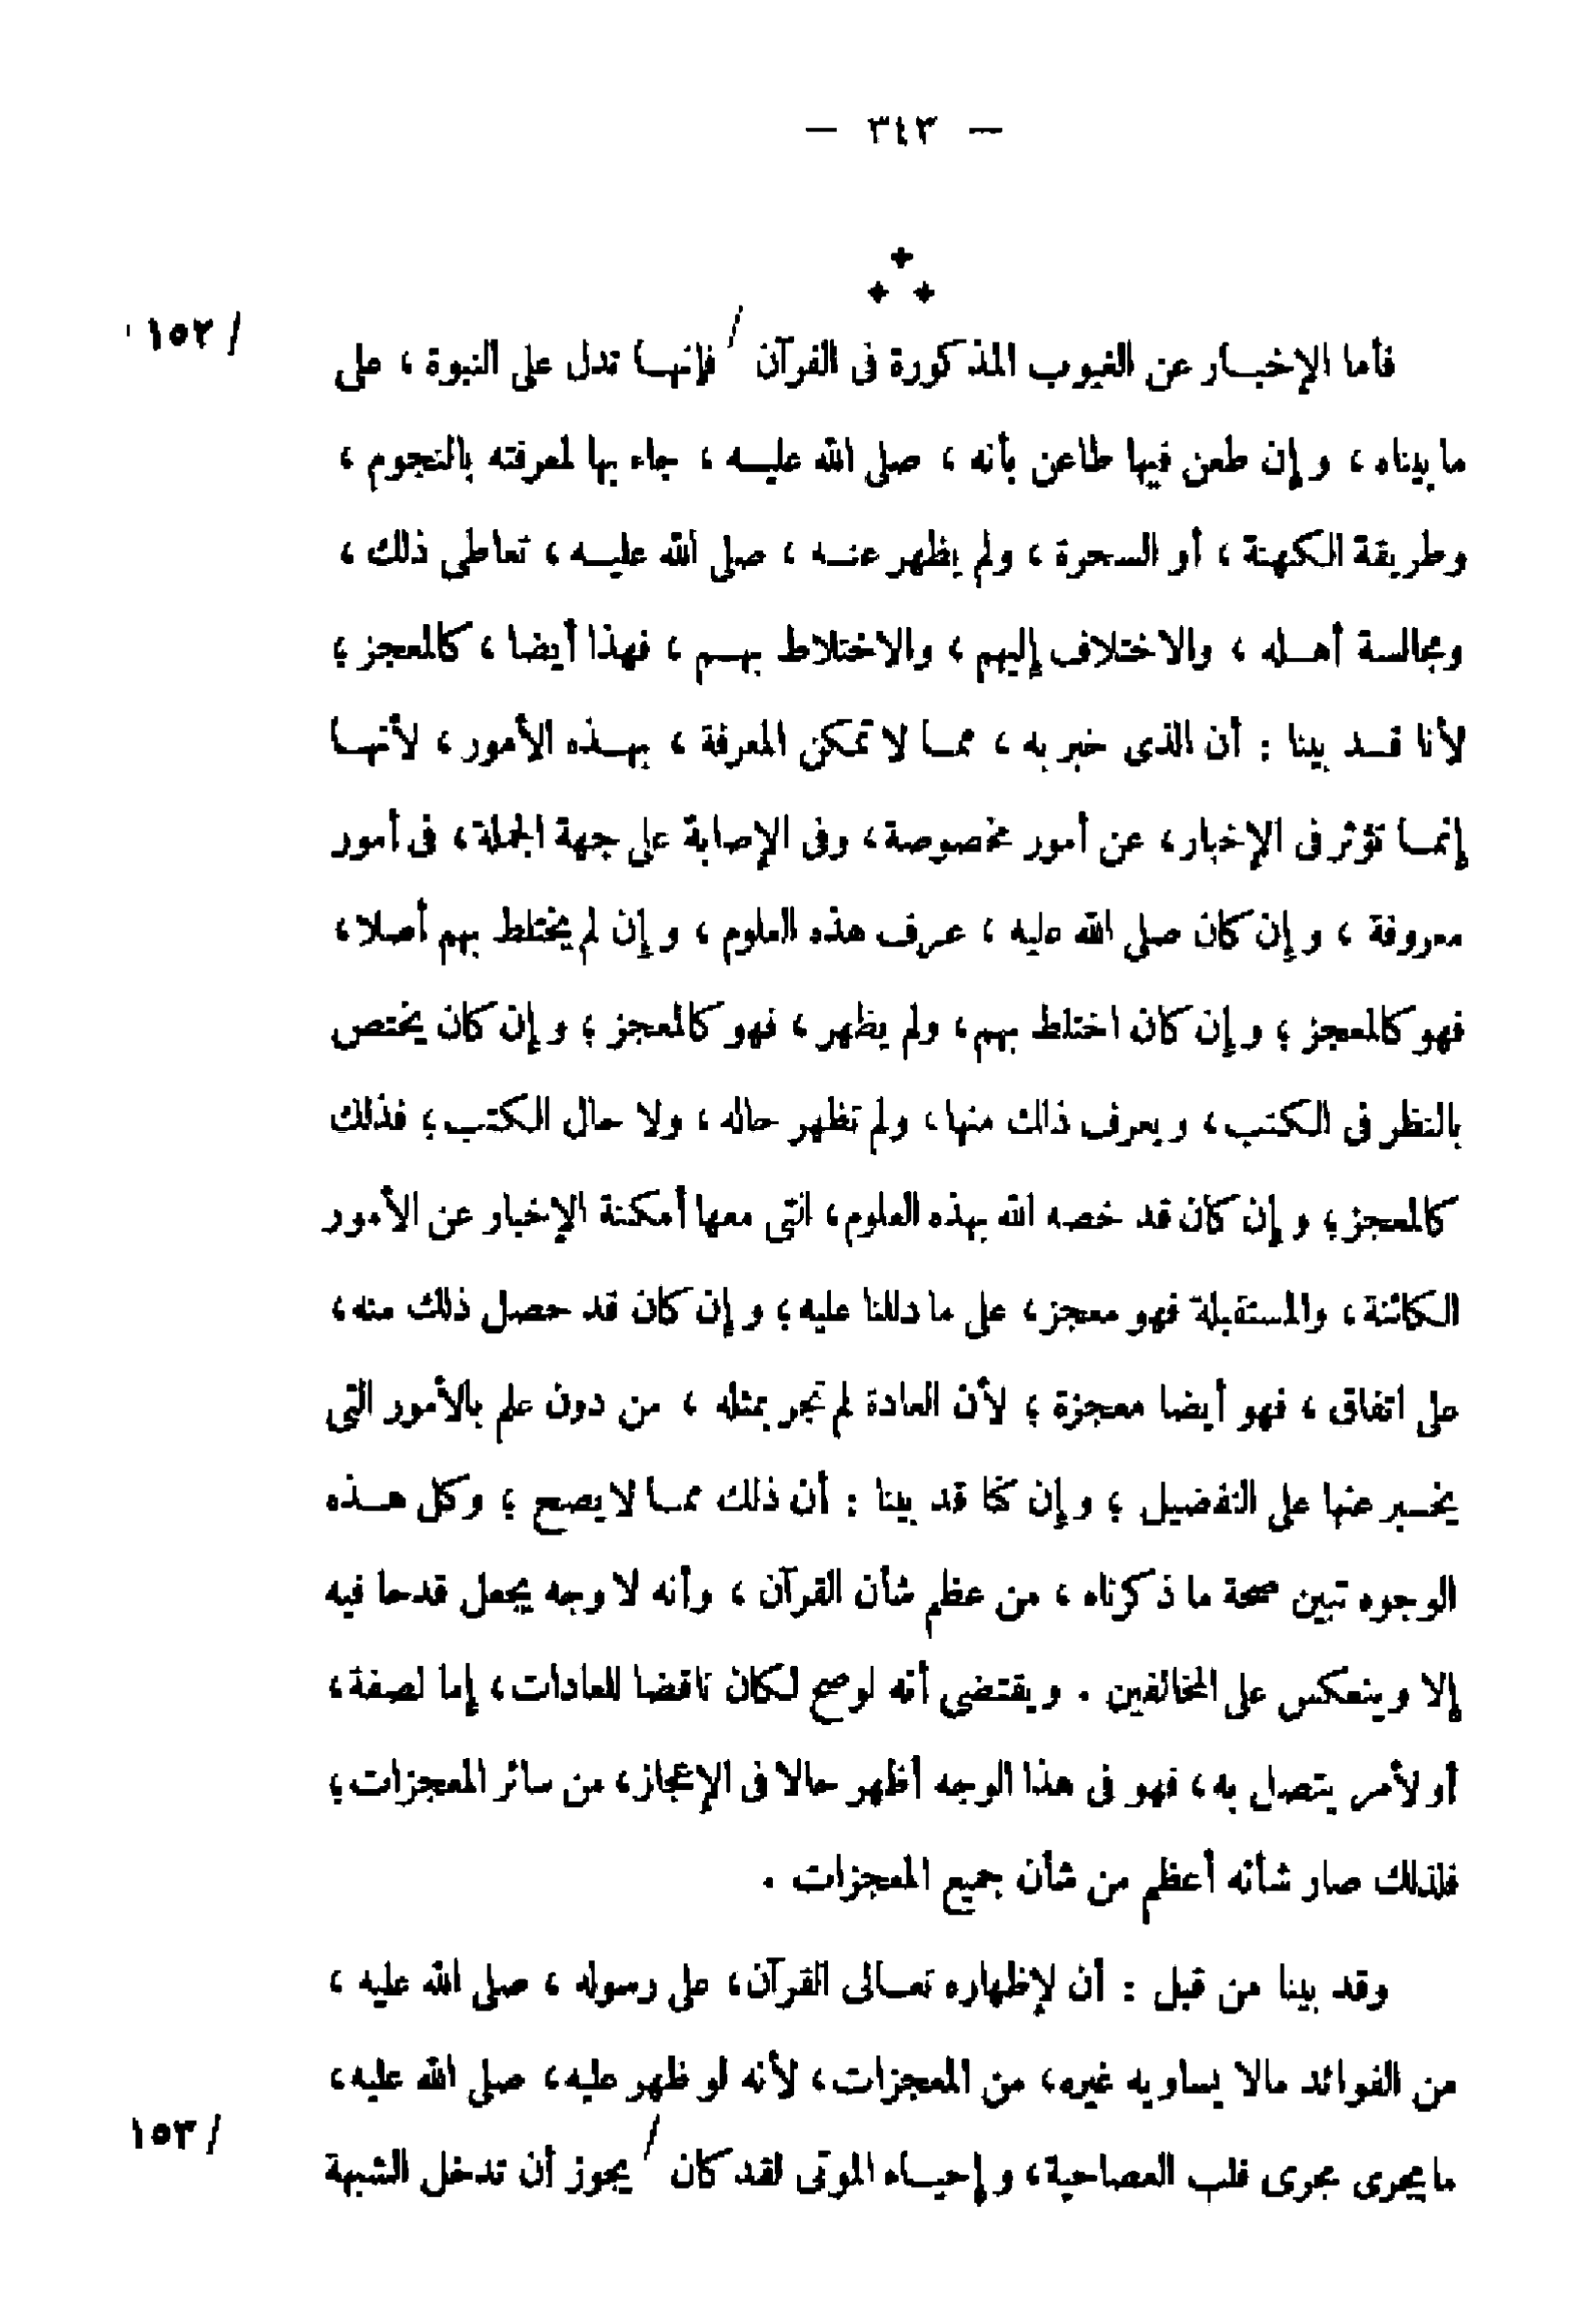 — ٣٤٣ —
/ ١٥٢
فأما الإخبار عن الغيوب المذكورة فى القرآن / فإنها تدل على النبوة ، على
ما بيناه ، وإن طعن فيها طاعن بأنه ، صلى الله عليه ، جاء بها لمعرفته بالنجوم ،
وطريقة الكهنة ، أو السحرة ، ولم يظهر عنه ، صلى الله عليه ، تعاطى ذلك ،
ومجالسة أهله ، والاختلاف إليهم ، والاختلاط بهم ، فهذا أيضا ، كالمعجز ؛
لأنا قد بينا : أن الذى خبر به ، مما لا تمكن المعرفة ، بهذه الأمور ، لأنها
إنما تؤثر فى الإخبار ، عن أمور مخصوصة ، وفى الإصابة على جهة الجملة ، فى أمور
معروفة ، وإن كان صلى الله عليه ، عرف هذه العلوم ، وإن لم يختلط بهم أصلا ،
فهو كالمعجز ؛ وإن كان اختلط بهم ، ولم يظهر ، فهو كالمعجز ؛ وإن كان يختص
بالنظر فى الكتب ، ويعرف ذلك منها ، ولم تظهر حاله ، ولا حال الكتب ؛ فذلك
كالمعجز ؛ وإن كان قد خصه الله بهذه العلوم ، التى معها أمكنة الإخبار عن الأمور
الكائنة ، والمستقبلة فهو معجز ، على ما دللنا عليه ؛ وإن كان قد حصل ذلك منه ،
على اتفاق ، فهو أيضا معجزة ؛ لأن العادة لم تجر بمثله ، من دون علم بالأمور التى
يخبر عنها على التفضيل ؛ وإن كنا قد بينا : أن ذلك مما لا يصح ؛ وكل هذه
الوجوه تبين صحة ما ذكرناه ، من عظم شأن القرآن ، وأنه لا وجه يجعل قدحا فيه
إلا وينعكس على المخالفين . ويقتضى أنه لو صح لكان ناقضا للعادات ، إما لصفة ،
أو لأمر يتصل به ، فهو فى هذا الوجه أظهر حالا فى الإعجاز ، من سائر المعجزات ؛
فلذلك صار شأنه أعظم من شأن جميع المعجزات .
وقد بينا من قبل : أن لإظهاره تعالى القرآن ، على رسوله ، صلى الله عليه ،
من الفوائد مالا يساويه غيره ، من المعجزات ، لأنه لو ظهر عليه ، صلى الله عليه ،
/ ١٥٣
ما يجرى مجرى قلب العصاحية ، وإحياء الموتى لقد كان / يجوز أن تدخل الشبهة